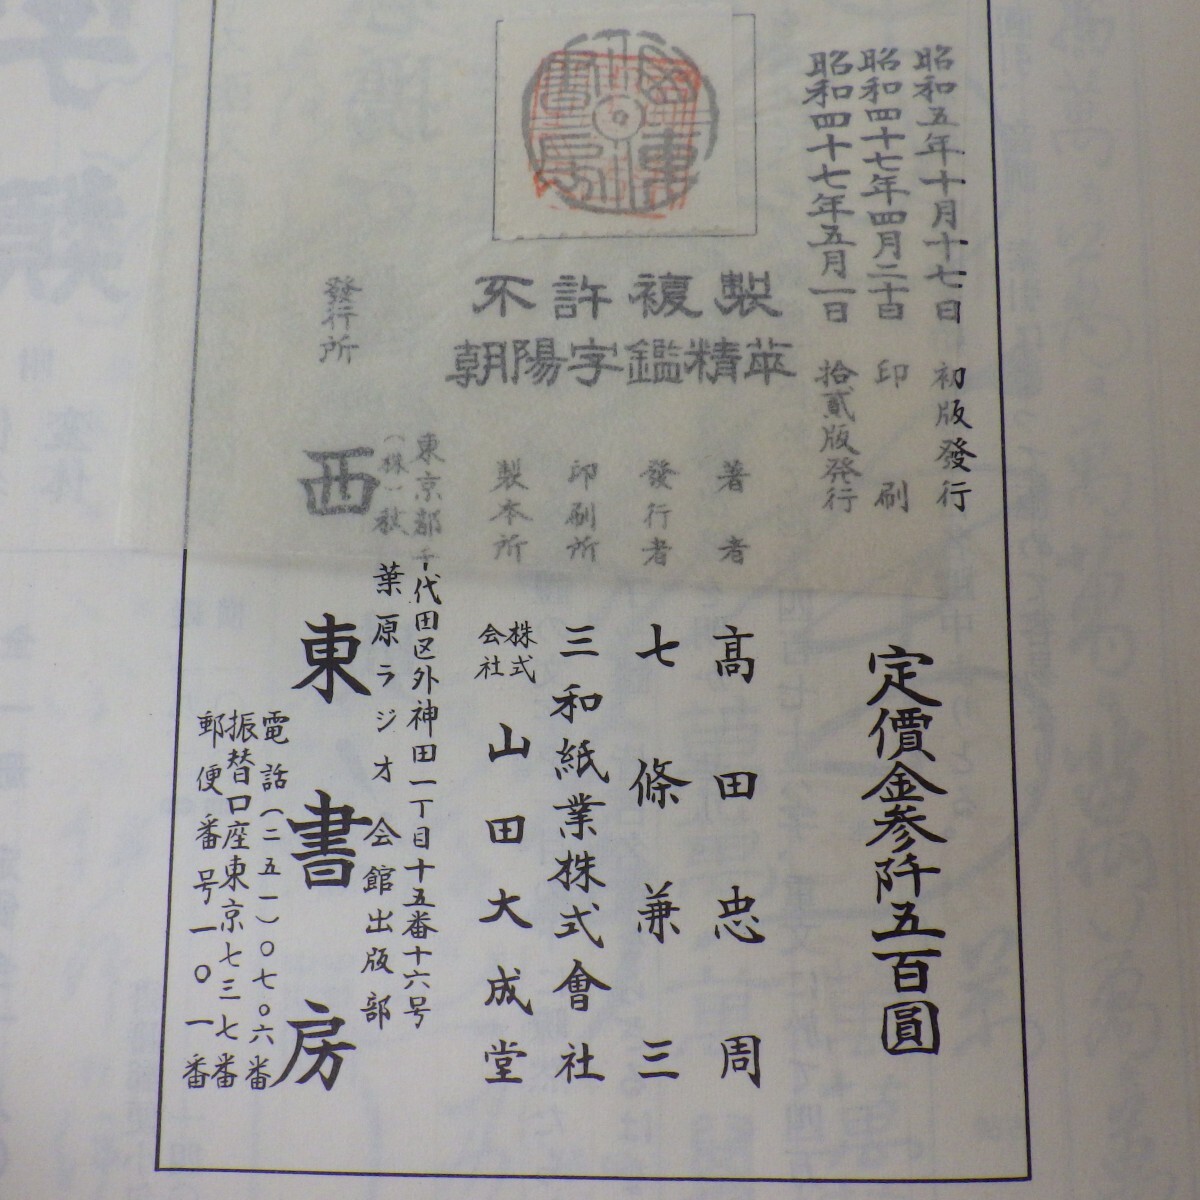 昭和五年十月十七日 初版發行
昭和四十七年四月二十日 印刷
昭和四十七年五月一日 拾貳版発行
定價金参阡五百圓
不許複製
朝陽字鑑精萃
著者 高田忠周
發行者 七條兼三
印刷所 三和紙業株式會社
製本所 株式会社 山田大成堂
東京都千代田区外神田一丁目十五番十六号
(株)秋葉原ラジオ会館出版部
發行所 西東書房
電話(二五一)〇七〇六番
振替口座東京七三七番
郵便番号一〇一番